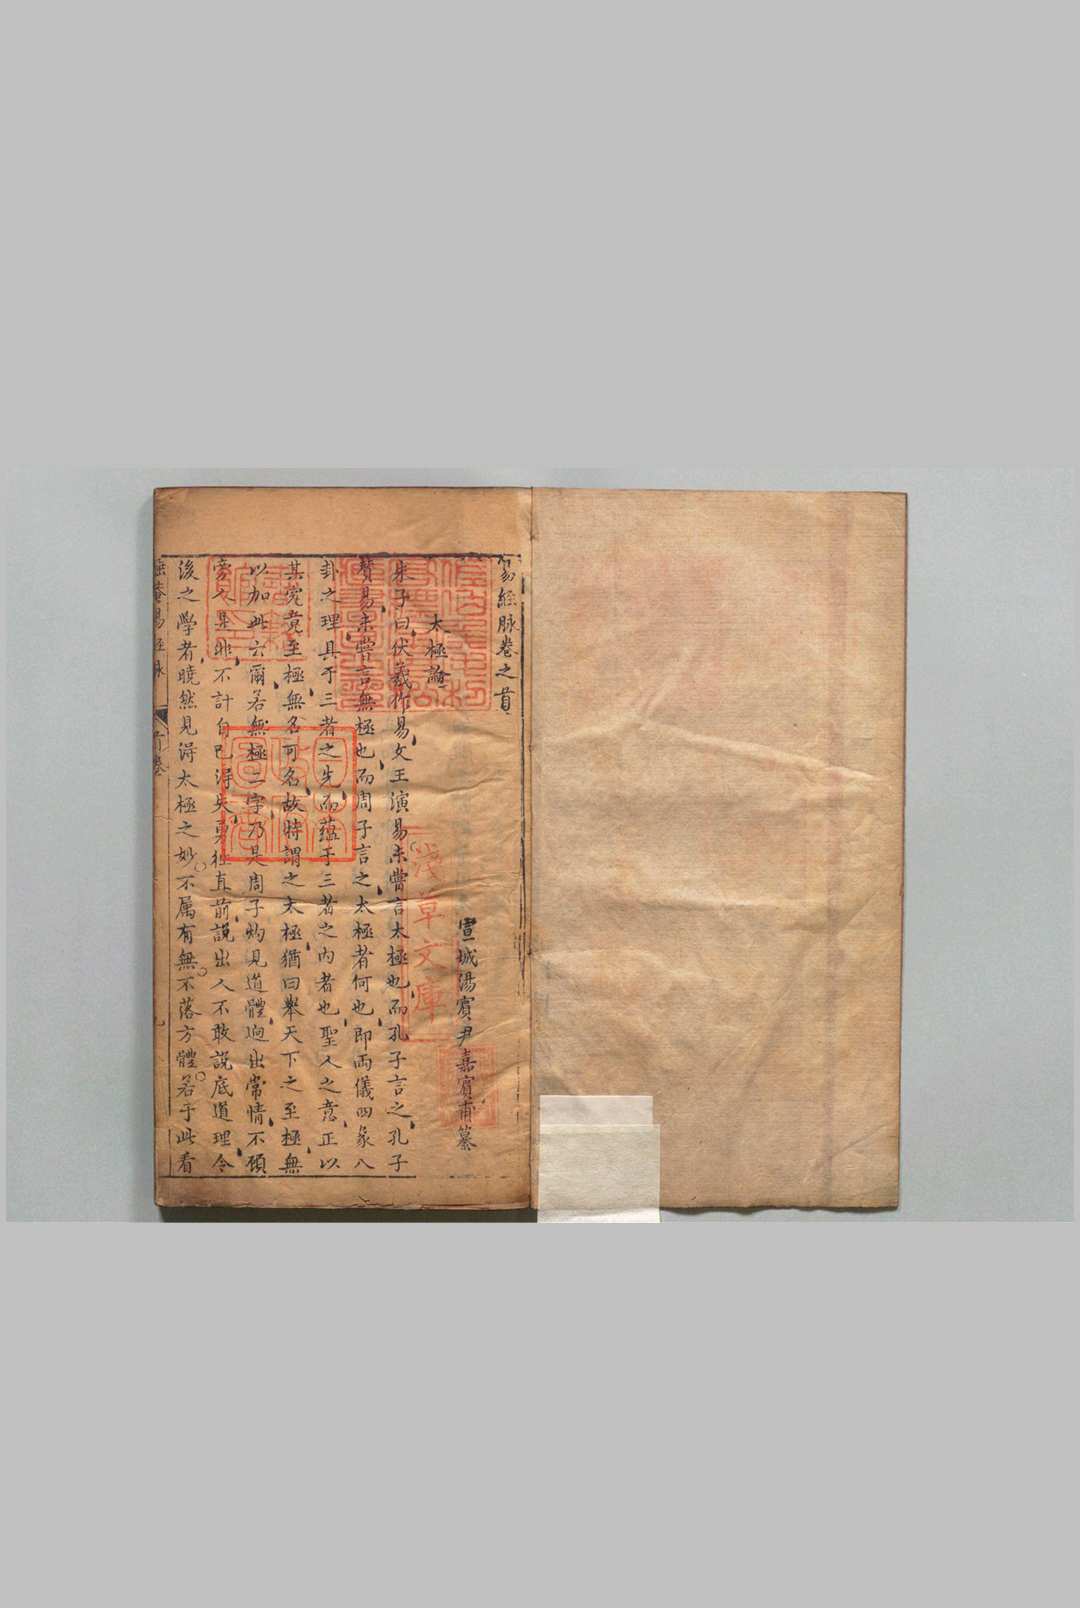 易經脉卷之首
太極論
宣城湯賓尹嘉賓甫纂
朱子曰伏羲作易文王演易未嘗言太極也而孔子言之孔子
賛易未嘗言無極也而周子言之太極者何也即兩儀四象八
卦之理具于三者之先而蘊于三者之內者也聖人之意正以
其究竟至極無名可名故特謂之太極猶曰舉天下之至極無
以加此云爾若無極二字乃是周子灼見道體迥出常情不顧
旁人是非不計自己得失勇往直前說出人不敢說底道理令
後之學者曉然見得太極之妙不属有無不落方體若于此看
睡菴易經脉
首卷
淺草文庫